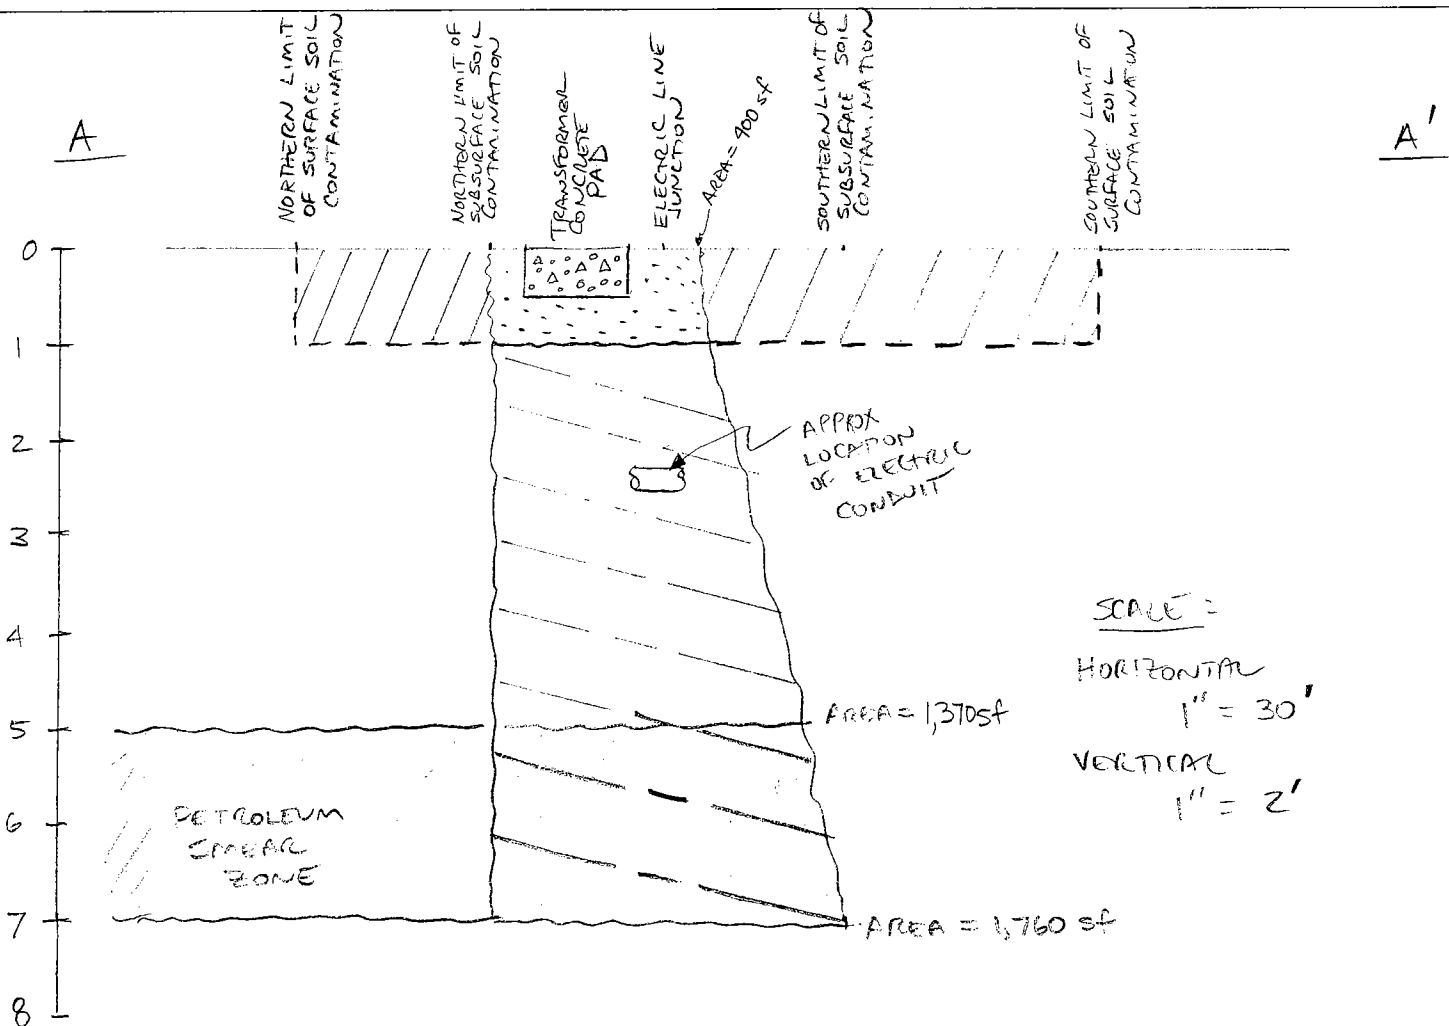 A
NORTHERN LIMIT
OF SURFACE SOIL
CONTAMINATION
NORTHERN LIMIT OF
SUBSURFACE SOIL
CONTAMINATION
TRANSFORMER
CONCRETE
PAD
ELECTRIC LINE
JUNCTION
AREA = 400 sf
SOUTHERN LIMIT OF
SUBSURFACE SOIL
CONTAMINATION
SOUTHERN LIMIT OF
SURFACE SOIL
CONTAMINATION
A'
0
1
2
3
4
5
6
7
8
APPROX
LOCATION
OF ELECTRIC
CONDUIT
AREA = 1,370 sf
PETROLEUM
SMEAR
ZONE
AREA = 1,760 sf
SCALE =
HORIZONTAL
1" = 30'
VERTICAL
1" = 2'